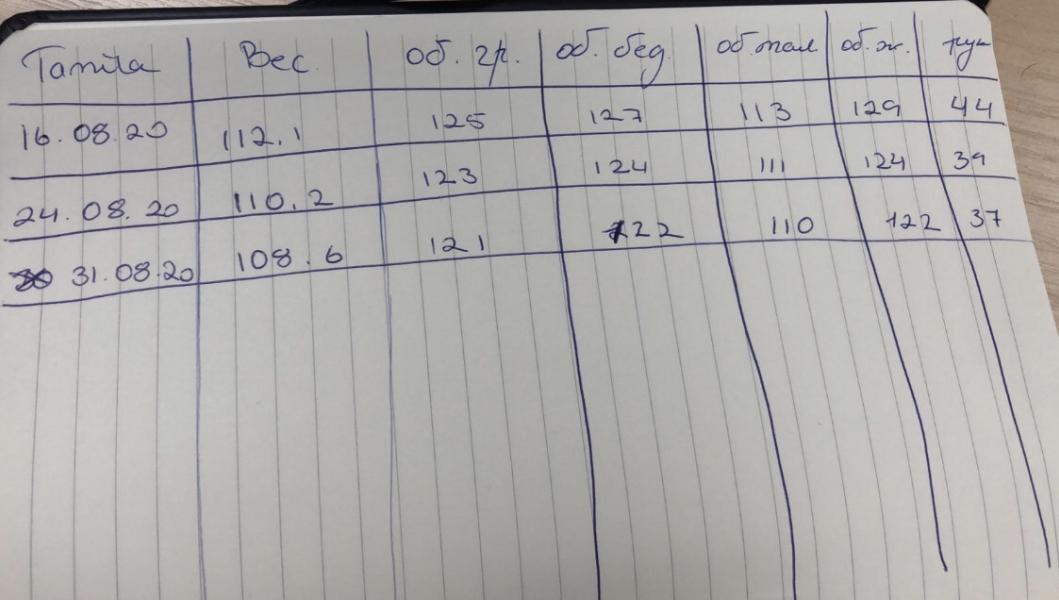 Tamila Вес. об. гр. об. бед. об. тал об. ж. рук
16.08.20 112.1 125 127 113 129 44
24.08.20 110.2 123 124 111 124 39
31.08.20 108.6 121 122 110 122 37